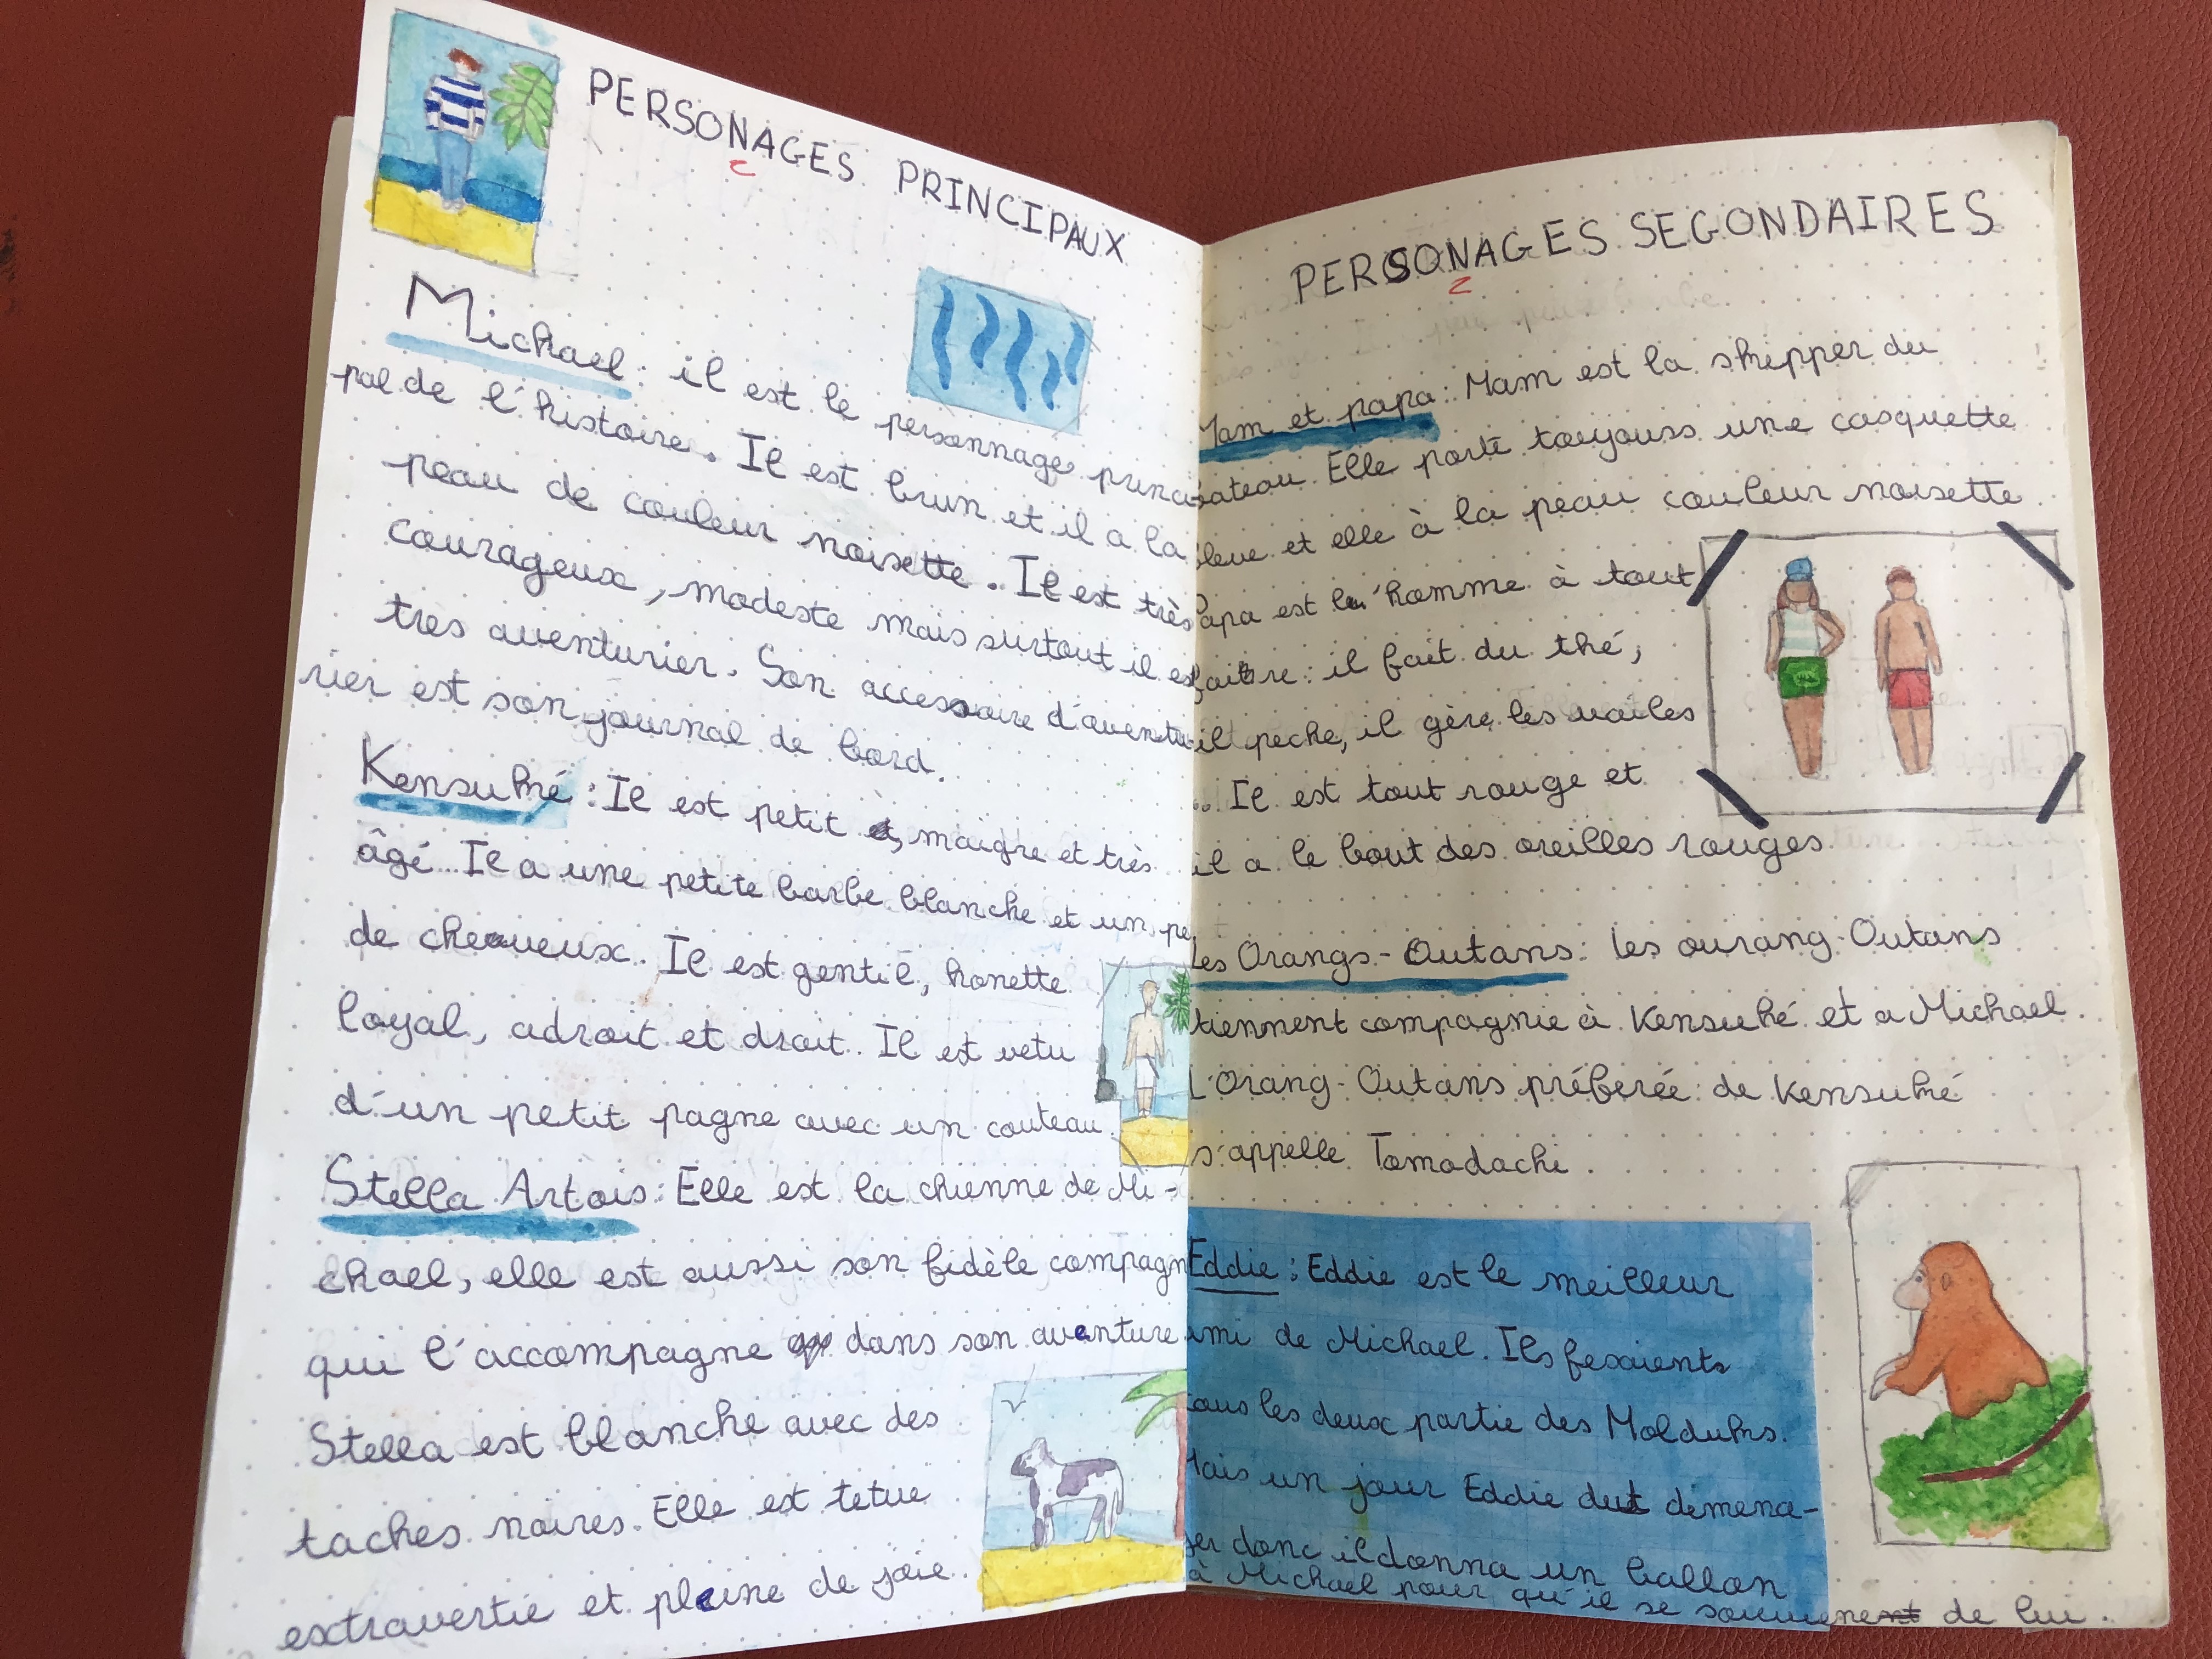 PERSONAGES PRINCIPAUX
Michael : il est le personnage princi-
pal de l'histoire. Il est brun et il a la
peau de couleur noisette. Il est très
courageux, modeste mais surtout il est
très aventurier. Son accessoire d'aventu-
rier est son journal de bord.
Kensuké : Il est petit, maigre et très
âgé. Il a une petite barbe blanche et un pe
de cheveux. Il est gentil, honette
loyal, adroit et droit. Il est vetu
d'un petit pagne avec un couteau.
Stella Artois : Elle est la chienne de Mi-
chael, elle est aussi son fidèle compagn
qui l'accompagne dans son aventure
Stella est blanche avec des
taches noires. Elle est tetue
extravertie et pleine de joie.
PERSONAGES SEGONDAIRES
Mam et papa : Mam est la skipper du
bateau. Elle porte toujours une casquette
bleue et elle à la peau couleur noisette
Papa est l'homme à tout
faire : il fait du thé,
il peche, il gère les voiles
... Il est tout rouge et
il a le bout des oreilles rouges
Les Orangs-Outans : les ourang-Outans
tiennent compagnie à Kensuké et a Michael.
L'Orang-Outans préferée de Kensuké
s'appelle Tomodachi.
Eddie : Eddie est le meilleur
ami de Michael. Ils fesaients
tous les deux partie des Molduks.
Mais un jour Eddie dut démena-
ger donc il donna un ballon
à Michael pour qu'il se souvienent de lui.